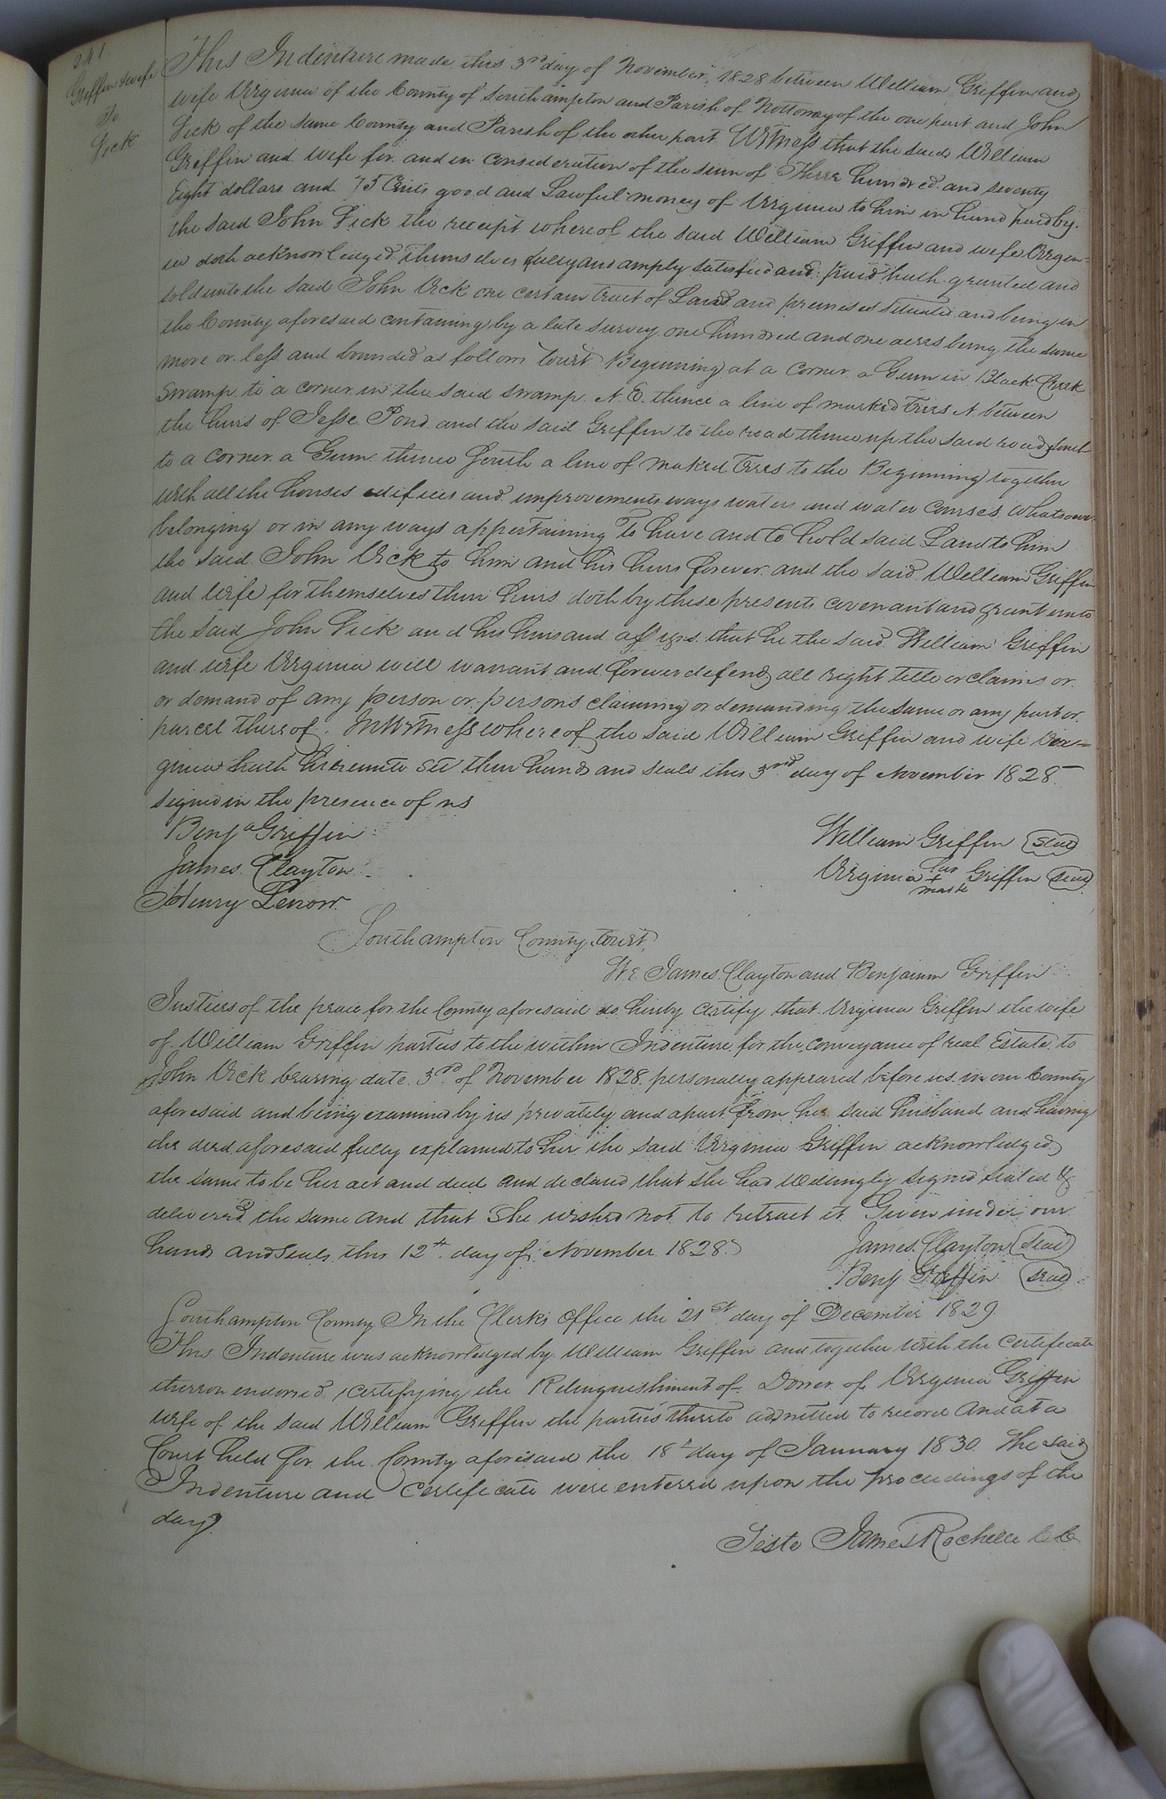 241
Griffin & wife
To
Vick
This Indenture made this 3rd day of November, 1828 between William Griffin and
wife Virginia of the County of Southampton and Parish of Nottoway of the one part and John
Vick of the same County and Parish of the other part Witness that the said William
Griffin and wife for and in consideration of the sum of Three hundred and seventy
Eight dollars and 75 Cents good and Lawful money of Virginia to him in hand paid by
the said John Vick the receipt whereof the said William Griffin and wife Virgin=
ia doth acknowledged themselves fully and amply satisfied and paid hath granted and
sold unto the said John Vick one certain tract of Land and premises situated and being in
the County aforesaid containing by a late survey one hundred and one acres being the same
more or less and bounded as follows towit Beginning at a corner a Gum in Black Creek
Swamp to a corner in the said swamp N. E. thence a line of marked trees N. between
the heirs of Jesse Pond and the said Griffin to the road thence up the said road
to a corner a Gum thence South a line of maked trees to the Beginning together
with all the houses edifices and improvements ways waters and water courses whatsoever
belonging or in any ways appertaining To have and to hold said Land to him
the said John Vick to him and his heirs forever and the said William Griffin
and wife for themselves their heirs doth by these presents covenant and grant unto
the said John Vick and his heirs and assigns that he the said William Griffin
and wife Virginia will warrant and forever defend all right title or claims or
or demand of any person or persons claiming or demanding the same or any part or
parcel thereof. In Witness whereof the said William Griffin and wife Vir=
ginia hath hereunto set their hands and seals this 3rd day of November 1828
Signed in the presence of us
Benja Griffin
James Clayton
Henry Lenow
William Griffin (Seal)
Virginia her + mark Griffin (Seal)
Southampton County towit,
We James Clayton and Benjamin Griffin
Justices of the peace for the County aforesaid do hereby certify that Virginia Griffin the wife
of William Griffin parties to the within Indenture for the conveyance of real Estate to
John Vick bearing date 3rd of November 1828 personally appeared before us in our County
aforesaid and being examined by us privately and apart from her said husband and having
the deed aforesaid fully explained to her the said Virginia Griffin acknowledged
the same to be her act and deed and declared that she had willingly signed sealed &
delivered the same and that she wished not to retract it Given under our
hands and seals this 12th day of November 1828
James Clayton (Seal)
Benj Griffin (Seal)
Southampton County In the Clerks Office the 21st day of December 1829
This Indenture was acknowledged by William Griffin and together with the certificate
thereon endorsed certifying the Relinquishment of Dower of Virginia Griffin
wife of the said William Griffin the parties thereto admitted to record And at a
Court held for the County aforesaid the 18th day of January 1830 The said
Indenture and Certificate were entered upon the proceedings of the
day
Teste James Rochelle C C